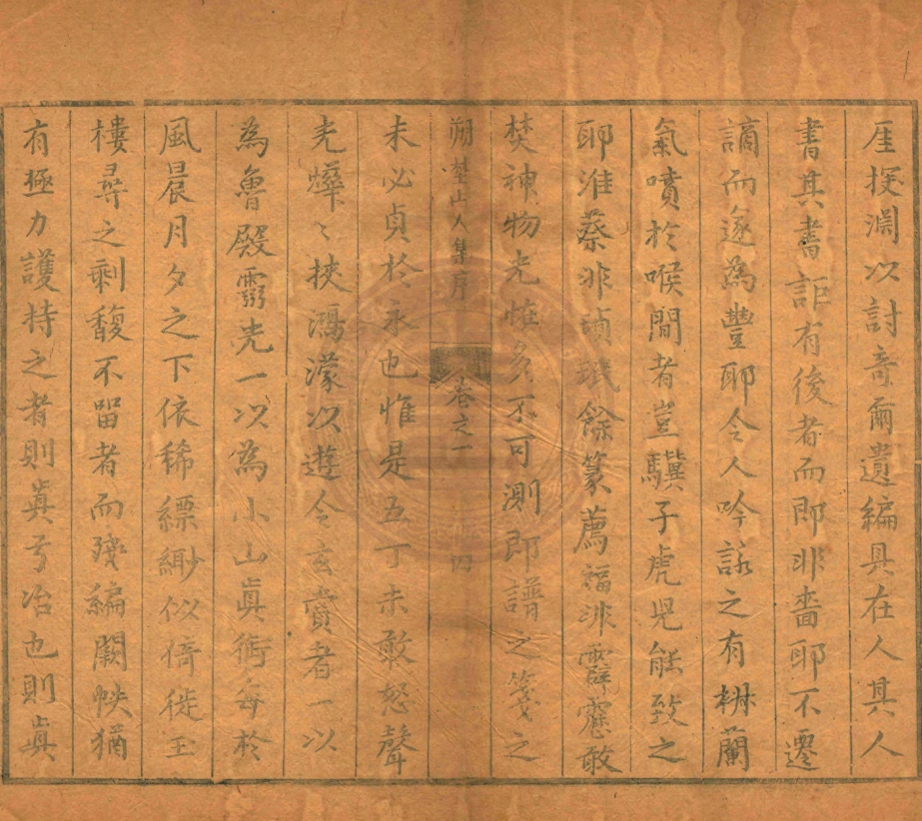 厓探淵以討竒爾遺編具在人其人
書其書詎有後者而即非嗇耶不遷
謫而遂為豐耶令人吟詠之有椒蘭
氣噴於喉間者豈驥子虎児能致之
耶淮蔡非碩珉餘篆薦福非霹靂敢
焚神物光恠多不可測即譜之箋之
朔埜山人集序 卷之一 四
未必貞於永也惟是五丁未敢怒聲
光燁〻挾鴻濛以遊令玄賞者一以
為魯殿霛光一以為小山真術每於
風晨月夕之下依稀縹緲似倚徙玉
樓尋之剩馥不留者而殘編闕帙猶
有極力護持之者則真亏冶也則真